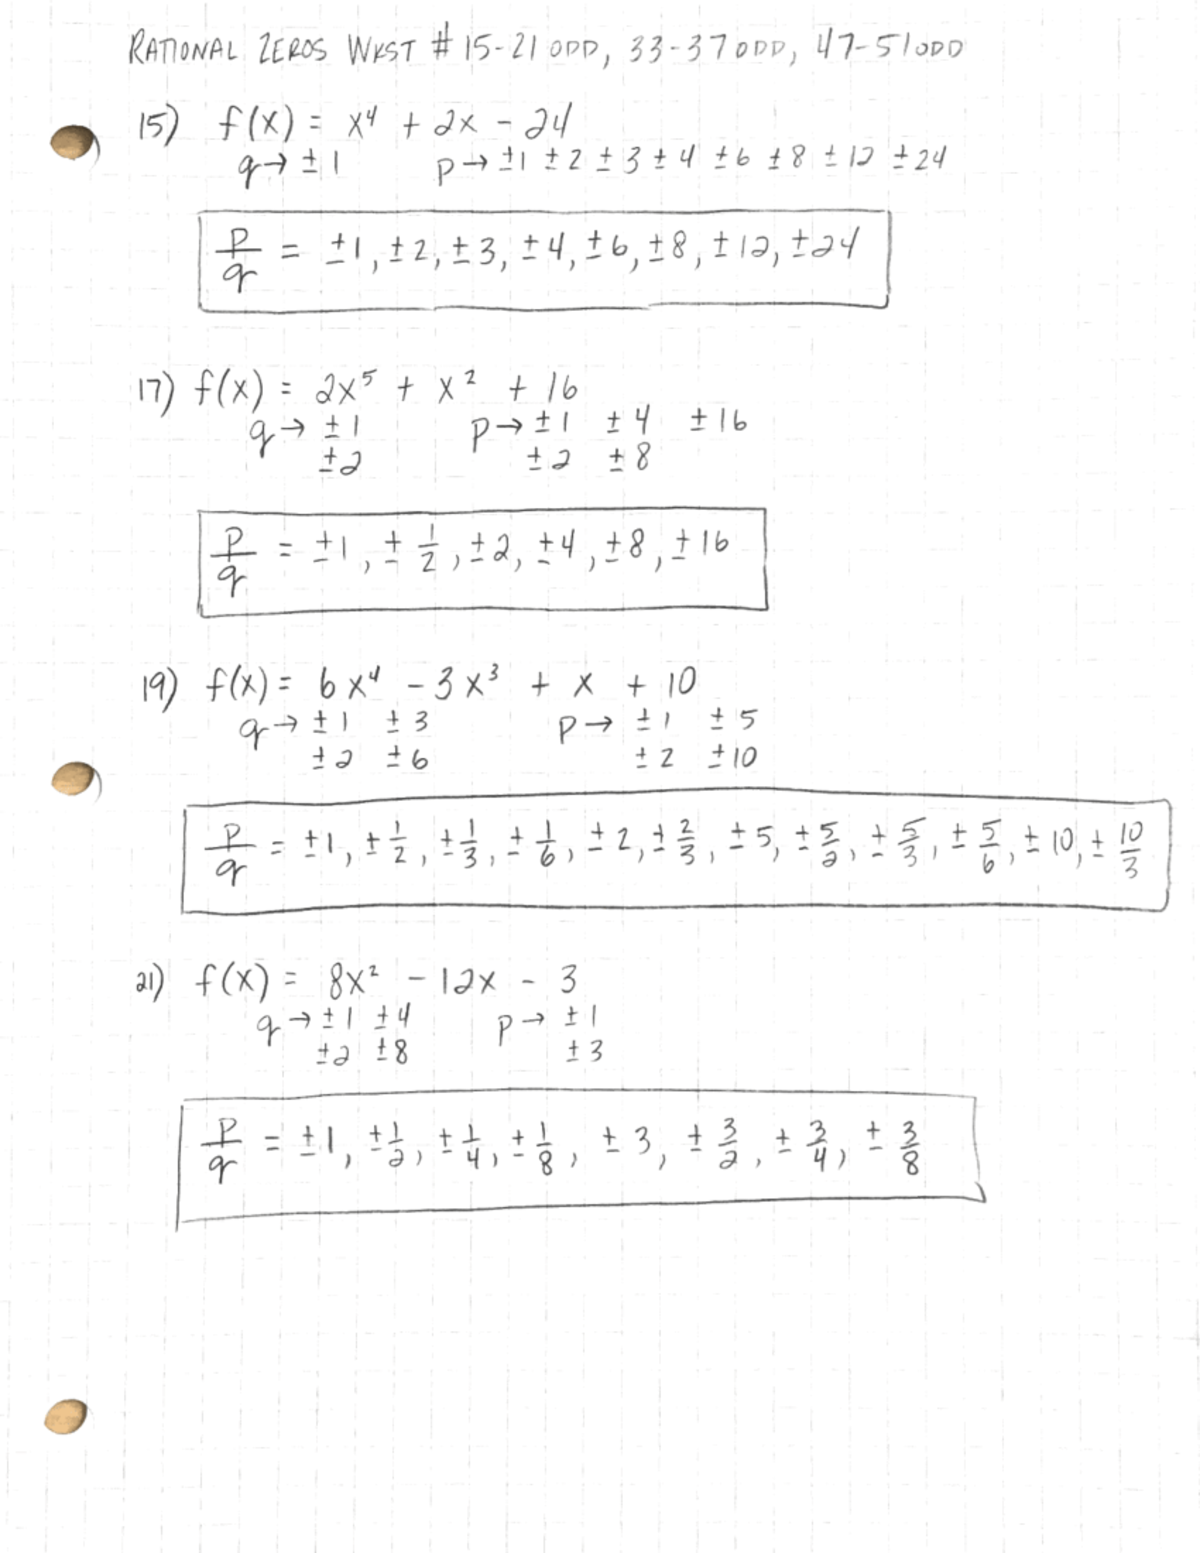 RATIONAL ZEROS WKST # 15-21 ODD, 33-37 ODD, 47-51 ODD
15) f(x) = x⁴ + 2x - 24
q → ±1 p → ±1 ±2 ±3 ±4 ±6 ±8 ±12 ±24
p/q = ±1, ±2, ±3, ±4, ±6, ±8, ±12, ±24
17) f(x) = 2x⁵ + x² + 16
q → ±1 p → ±1 ±4 ±16
±2 ±2 ±8
p/q = ±1, ±1/2, ±2, ±4, ±8, ±16
19) f(x) = 6x⁴ - 3x³ + x + 10
q → ±1 ±3 p → ±1 ±5
±2 ±6 ±2 ±10
p/q = ±1, ±1/2, ±1/3, ±1/6, ±2, ±2/3, ±5, ±5/2, ±5/3, ±5/6, ±10, ±10/3
21) f(x) = 8x² - 12x - 3
q → ±1 ±4 p → ±1
±2 ±8 ±3
p/q = ±1, ±1/2, ±1/4, ±1/8, ±3, ±3/2, ±3/4, ±3/8